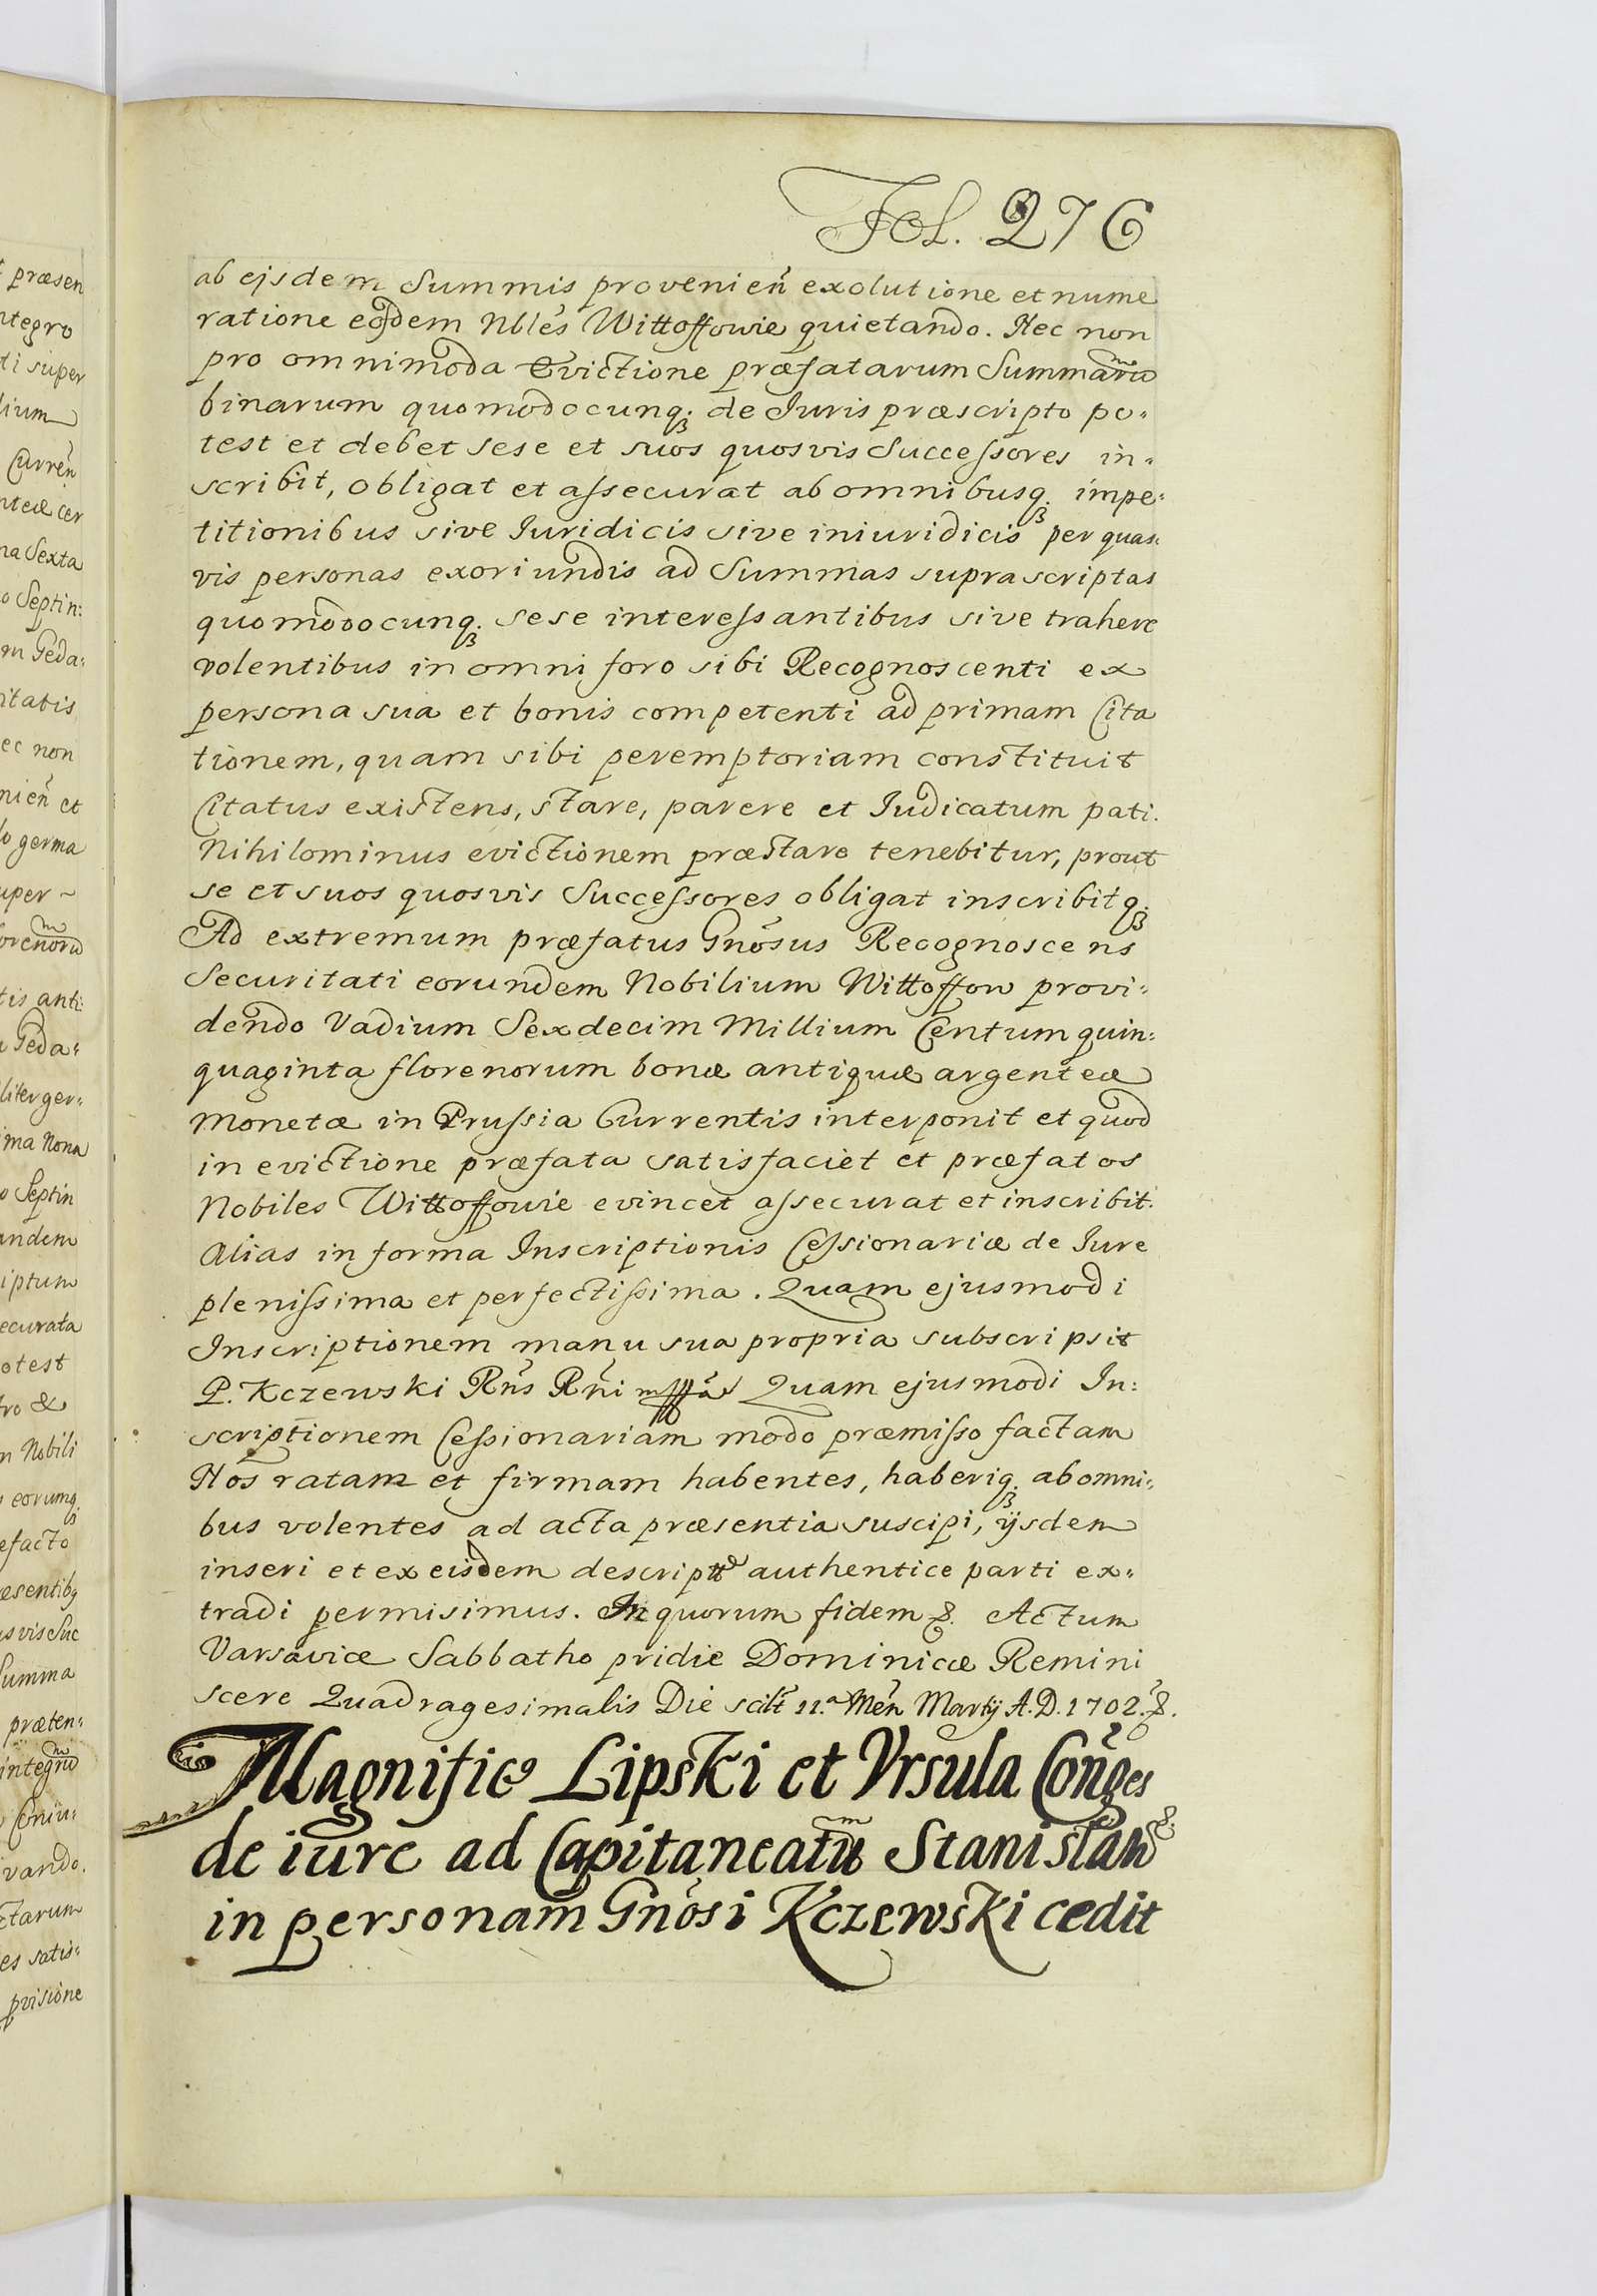 Fol. 276
ab ejsdem Summis provenień exolutione et nume
ratione eosdem Nbles Wittoffowie quietando. Nec non
pro omnimoda Evictione præfatarum Summarum
binarum quomodocunq; de Iuris præscripto po-
test et debet sese et suos quosvis Successores in-
scribit, obligat et assecurat ab omnibusq; impe-
titionibus sive Iuridicis sive iniuridicis per quas-
vis personas exoriundis ad Summas suprascriptas
quomodocunq; sese interessantibus sive trahere
volentibus in omni foro sibi Recognoscenti ex
persona sua et bonis competenti ad primam Cita
tionem, quam sibi peremptoriam constituit
Citatus existens, stare, parere et Iudicatum pati.
Nihilominus evictionem præstare tenebitur, prout
se et suos quosvis Successores obligat inscribitq;
Ad extremum præfatus Gnosus Recognoscens
Securitati eorundem Nobilium Wittoffow provi-
dendo Vadium Sexdecim Millium Centum quin:
quaginta florenorum bonæ antiquæ argenteæ
Monetæ in Prussia Currentis interponit et quod
in evictione præfata satisfaciet et præfatos
Nobiles Wittoffowie evincet assecurat et inscribit.
Alias in forma Inscriptionis Cessionariæ de Iure
plenissima et perfectissima. Quam ejusmodi
Inscriptionem manu sua propria subscripsit
P. Kczewski Rńs Rńi mppa Quam ejusmodi In:
scriptionem Cessionariam modo præmisso factam
Nos ratam et firmam habentes, haberiq; ab omni:
bus volentes ad acta præsentia suscipi, ijsdem
inseri et ex eisdem descriptô authentice parti ex-
tradi permisimus. In quorum fidem &. Actum
Varsaviæ Sabbatho pridie Dominicæ Remini
scere Quadragesimalis Die scilt 11.a Meń Martij A.D. 1702. &.
Magnifici Lipski et Vrsula Cońges
de iure ad Capitaneatum Stanislaw &
in personam Gnosi Kczewski cedit